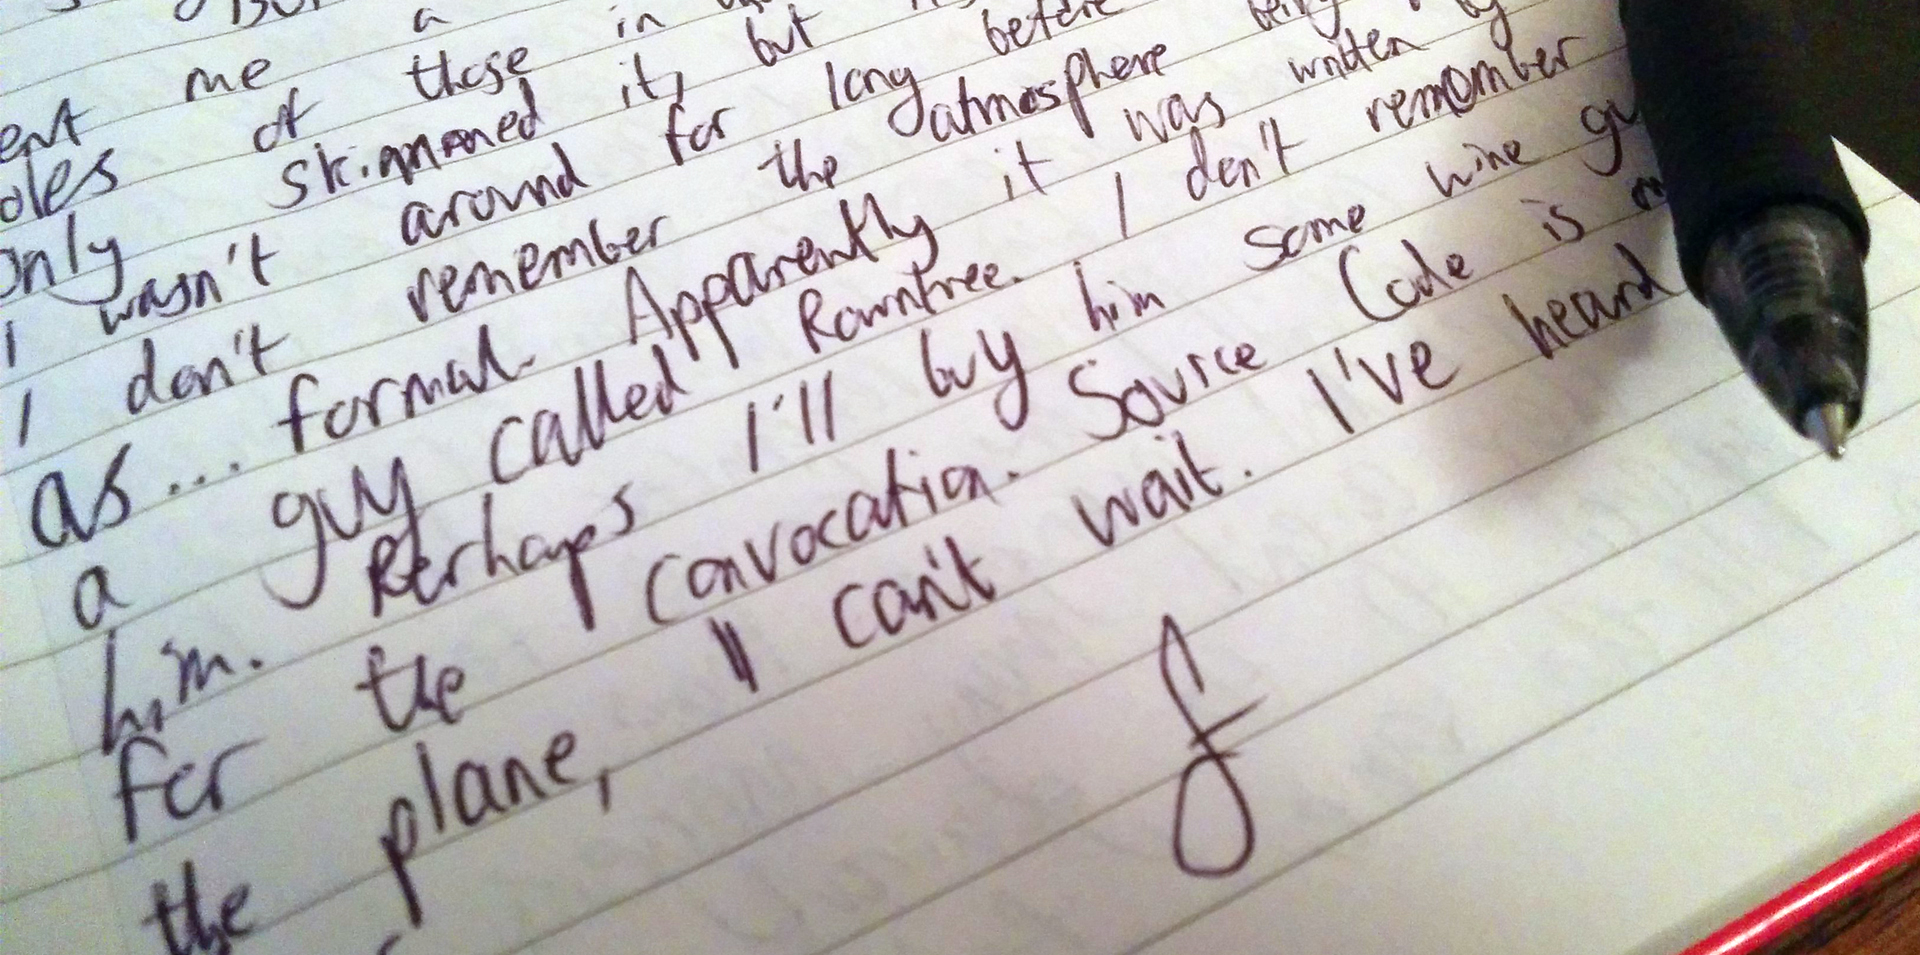 me a
of those in
only skimmed it, but
I wasn't around for long before
I don't remember the atmosphere being
as... formal. Apparently it was written by
a guy called Rowntree. I don't remember
him. Perhaps I'll buy him some wine
for the convocation. Source Code is
the plane, I can't wait. I've heard